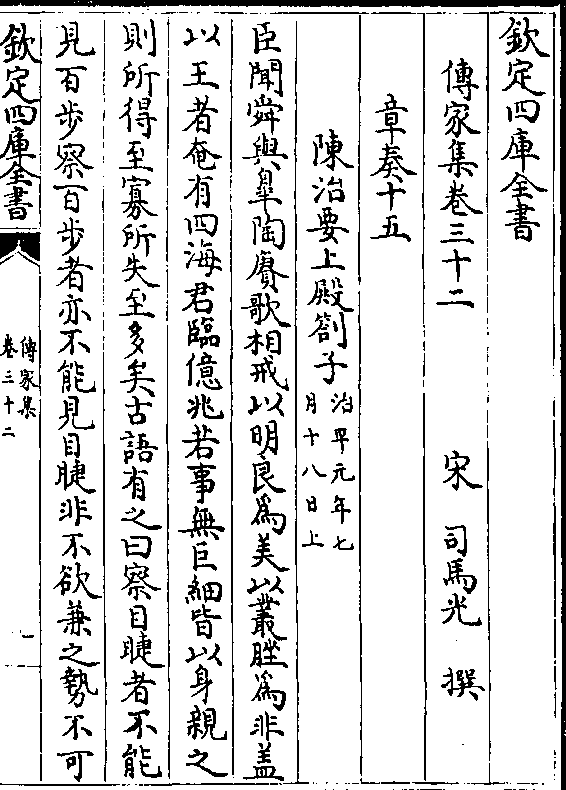 欽定四庫全書
傳家集卷三十二
宋 司馬光 撰
章奏十五
陳治要上殿劄子治平元年七月十八日上
臣聞舜與臯陶賡歌相戒以明良為美以叢脞為非蓋
以王者奄有四海君臨億兆若事無巨細皆以身親之
則所得至寡所失至多矣古語有之曰察目睫者不能
見百步察百步者亦不能見目睫非不欲兼之勢不可
欽定四庫全書
傳家集
卷三十二
一